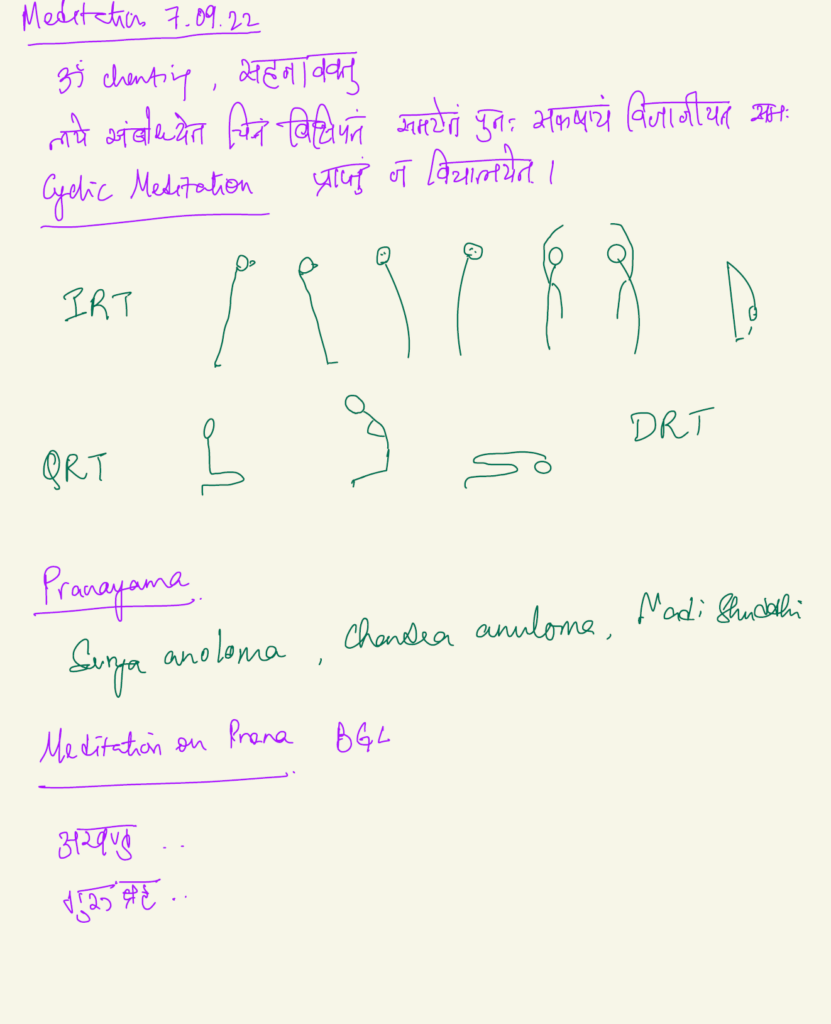 Meditation 7.09.22
ॐ chanting, सहनाववतु
लये संबोधयेत चित्तं विक्षिपतं समयेतं पुनः सकषायं विजानीयत सम:
Cyclic Meditation प्राप्तुं न
IRT
DRT
QRT
Pranayama.
Surya anoloma, Chandra anuloma, Nadi Shuddhi
Meditation on Prana BGL
अखण्ड ..
गुरु ..